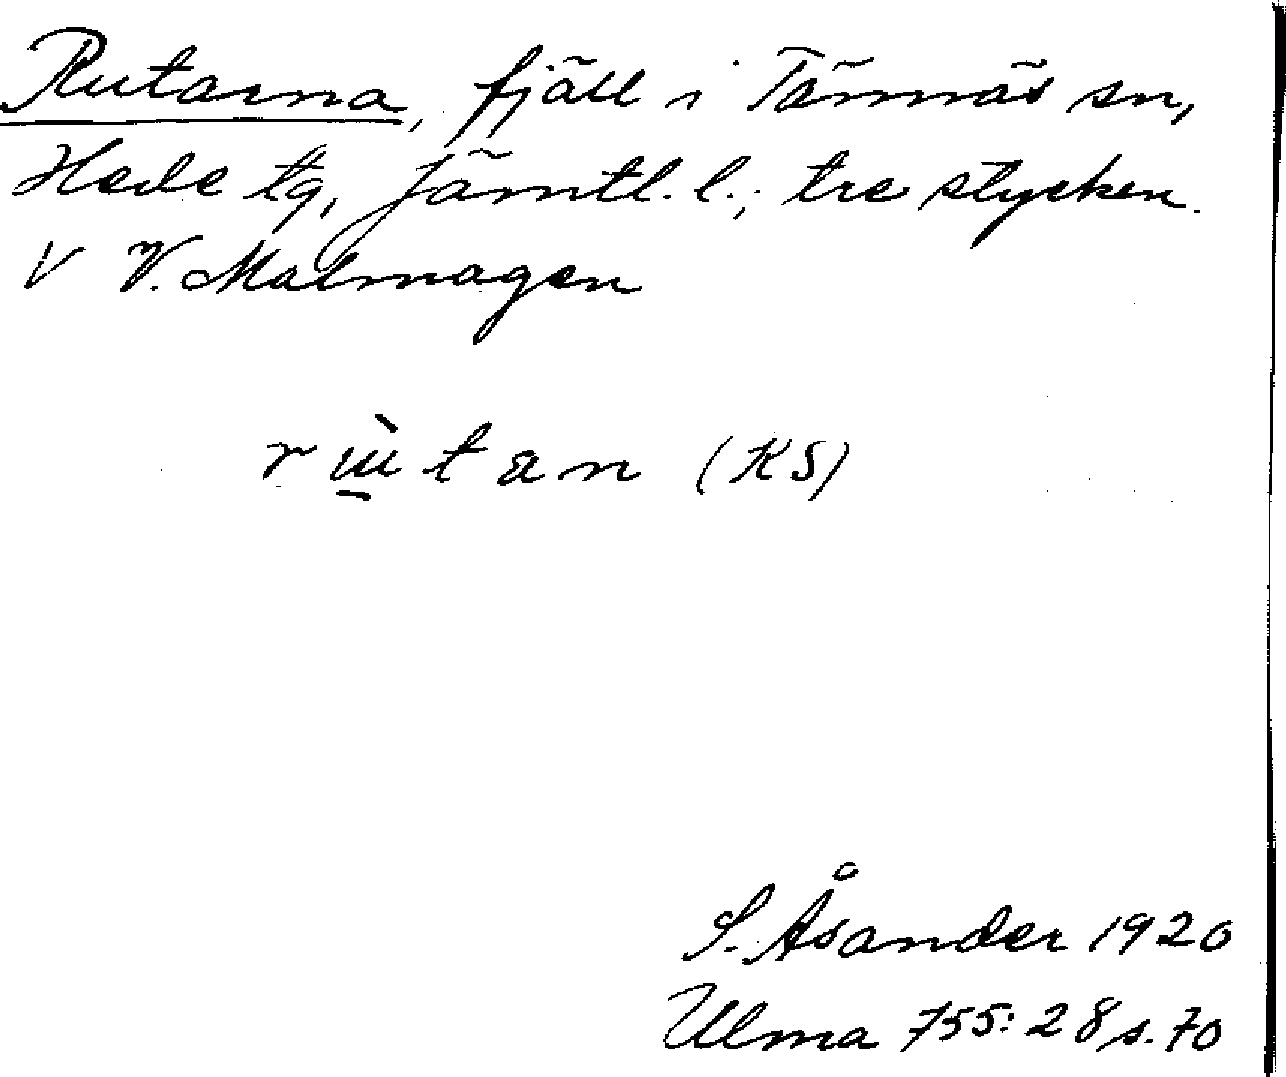 Rutarna, fjäll i Tännäs sn,
Hede tg, Jämtl. l.; tre stycken
V V. Malmagen
rɯ̱̀tan (KS)
S. Åsander 1920
Ulma 755:28 s. 70